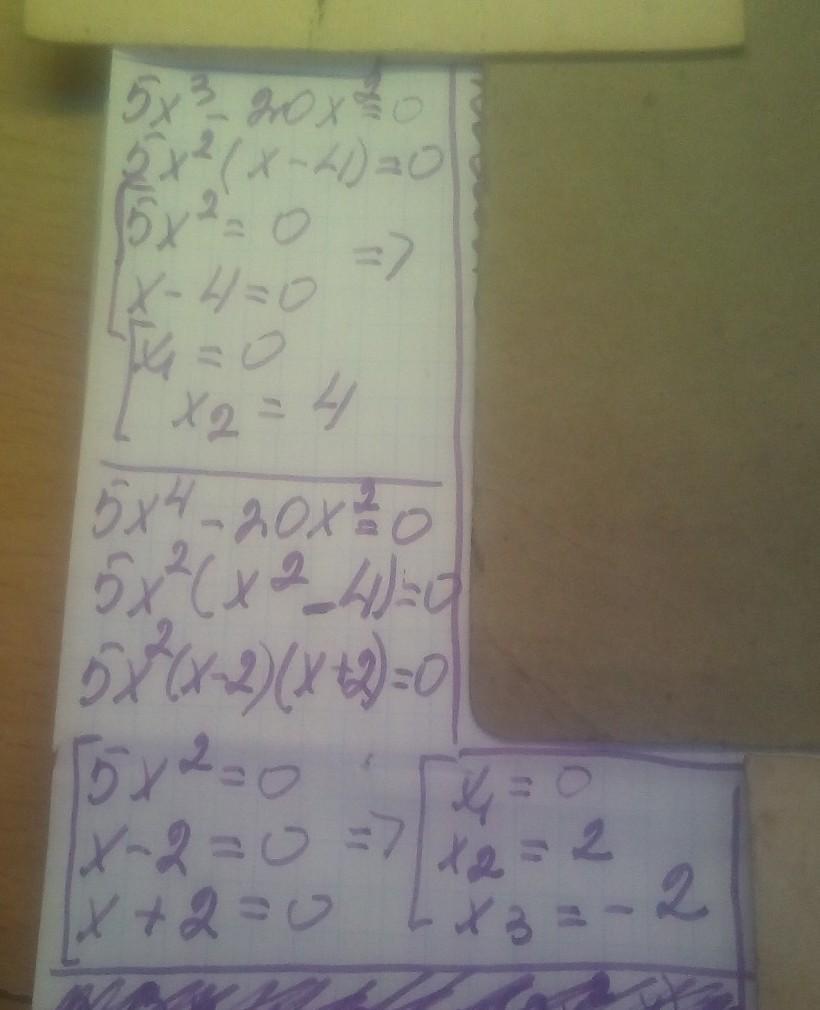 5x³ - 20x² = 0
5x²(x - 4) = 0
[5x² = 0
x - 4 = 0 =>
[x₁ = 0
x₂ = 4
5x⁴ - 20x² = 0
5x²(x² - 4) = 0
5x²(x-2)(x+2) = 0
[5x² = 0
x - 2 = 0 =>
x + 2 = 0
[x₁ = 0
x₂ = 2
x₃ = -2